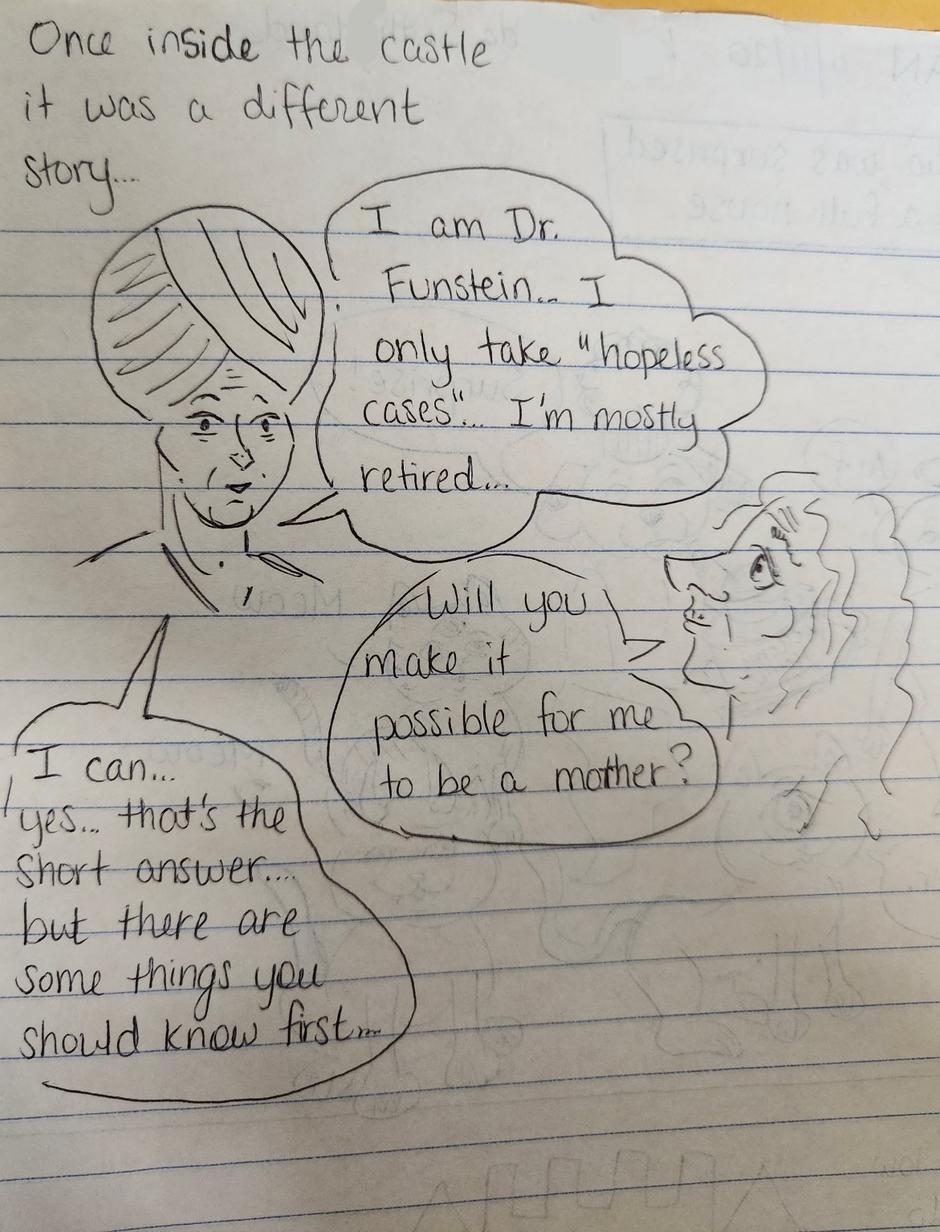 Once inside the castle
it was a different
story...
I am Dr.
Funstein... I
only take "hopeless
cases"... I'm mostly
retired...
Will you
make it
possible for me
to be a mother?
I can...
yes... that's the
short answer....
but there are
some things you
should know first...